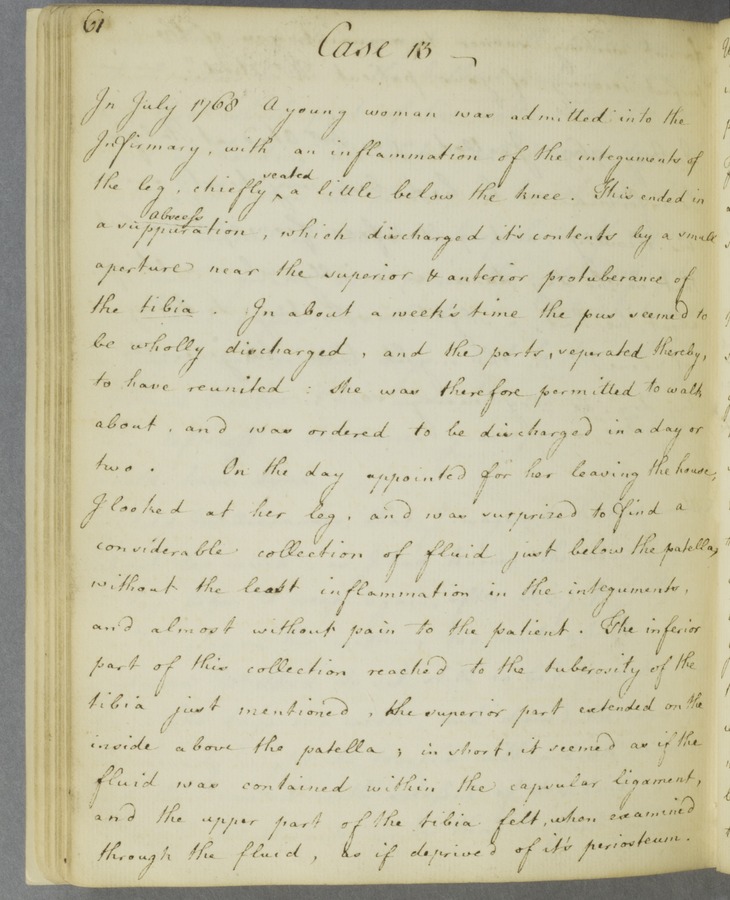 61
Case 13
In July 1768 A young woman was admitted into the
Infirmary, with an inflammation of the integuments of
seated
the leg, chiefly ‸ a little below the knee. This ended in
abscess
a suppuration, which discharged it's contents by a small
aperture near the superior & anterior protuberance of
the tibia. In about a week's time the pus seem'd to
be wholly discharged, and the parts, seperated thereby,
to have reunited: she was therefore permitted to walk
about, and was ordered to be discharged in a day or
two. On the day appointed for her leaving the house,
I looked at her leg, and was surprized to find a
considerable collection of fluid just below the patella,
without the least inflammation in the integuments,
and almost without pain to the patient. The inferior
part of this collection reach'd to the tuberosity of the
tibia just mentioned, the superior part extended on the
inside above the patella; in short, it seem'd as if the
fluid was contained within the capsular ligament,
and the upper part of the tibia felt, when examined
through the fluid, as if deprived of it's periosteum.